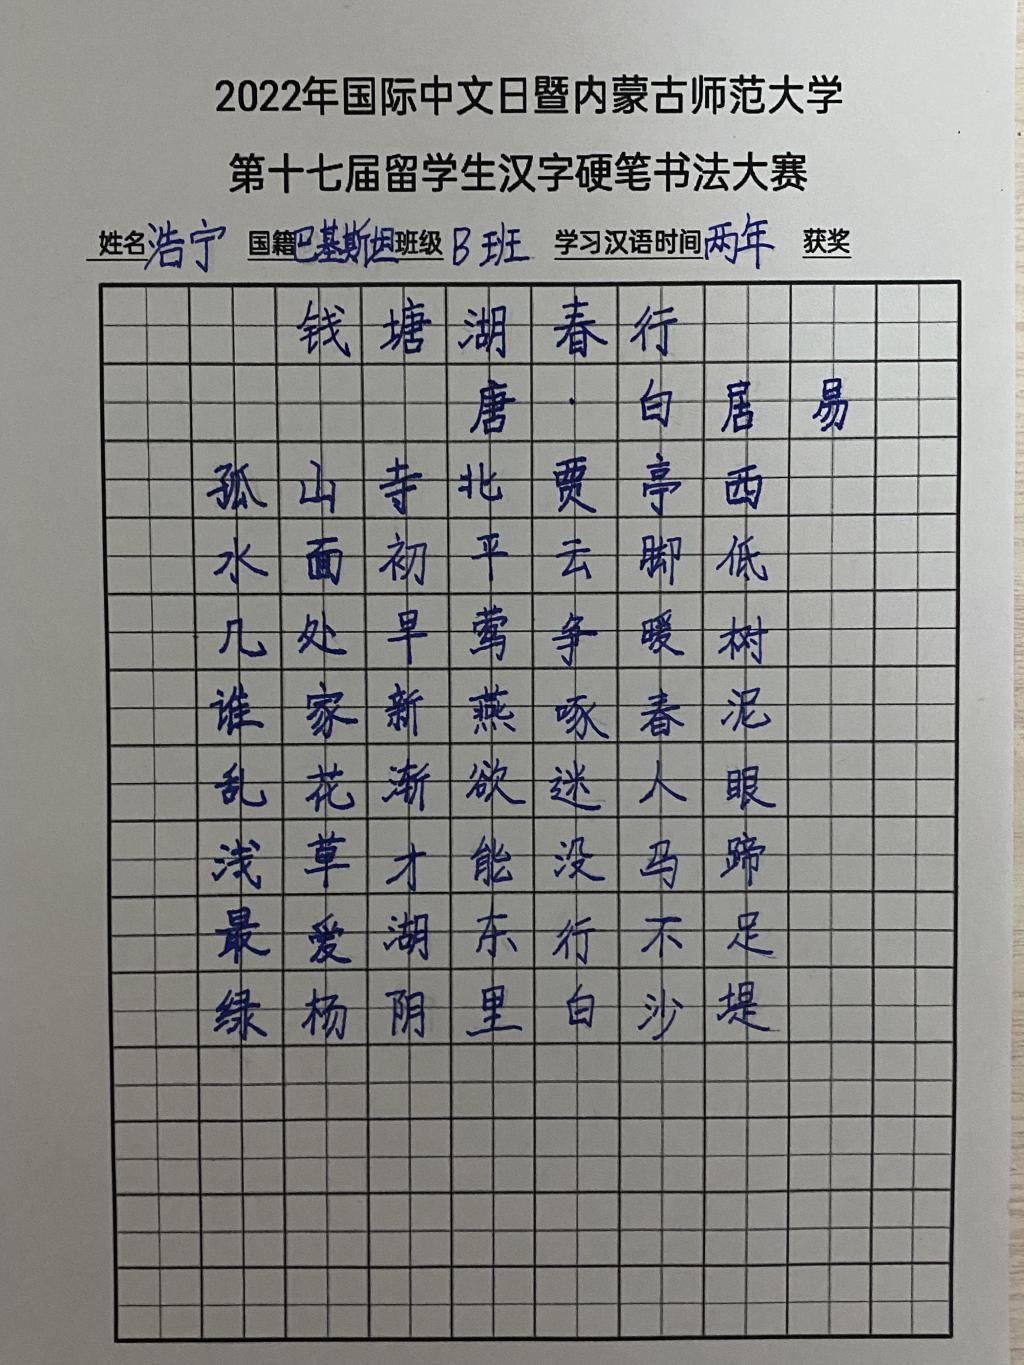 2022年国际中文日暨内蒙古师范大学
第十七届留学生汉字硬笔书法大赛
姓名浩宁 国籍巴基斯坦班级B班 学习汉语时间两年 获奖
钱塘湖春行
唐·白居易
孤山寺北贾亭西
水面初平云脚低
几处早莺争暖树
谁家新燕啄春泥
乱花渐欲迷人眼
浅草才能没马蹄
最爱湖东行不足
绿杨阴里白沙堤